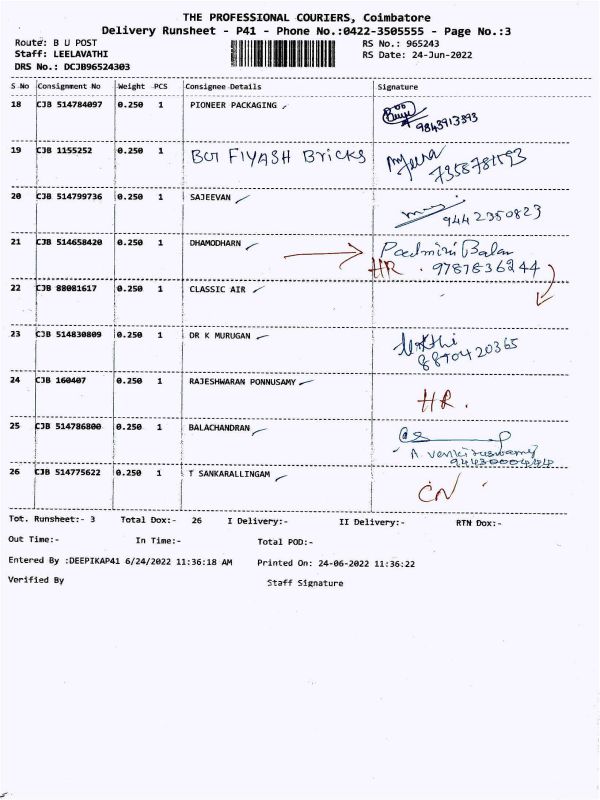 THE PROFESSIONAL COURIERS, Coimbatore
Delivery Runsheet - P41 - Phone No.:0422-3505555 - Page No.:3
Route: B U POST RS No.: 965243
Staff: LEELAVATHI RS Date: 24-Jun-2022
DRS No.: DCJB96524303
S No Consignment No Weight PCS Consignee Details Signature
18 CJB 514784097 0.250 1 PIONEER PACKAGING
9843913393
19 CJB 1155252 0.250 1 BUT FIYASH BRICKS
7358781593
20 CJB 514799736 0.250 1 SAJEEVAN
9442350823
21 CJB 514658420 0.250 1 DHAMODHARN Padmini Balan
HR . 9787836244
22 CJB 88081617 0.250 1 CLASSIC AIR
23 CJB 514830809 0.250 1 DR K MURUGAN
8870420365
24 CJB 160407 0.250 1 RAJESHWARAN PONNUSAMY
HR .
25 CJB 514786800 0.250 1 BALACHANDRAN
26 CJB 514775622 0.250 1 T SANKARALLINGAM
CN
Tot. Runsheet:- 3 Total Dox:- 26 I Delivery:- II Delivery:- RTN Dox:-
Out Time:- In Time:- Total POD:-
Entered By :DEEPIKAP41 6/24/2022 11:36:18 AM Printed On: 24-06-2022 11:36:22
Verified By Staff Signature